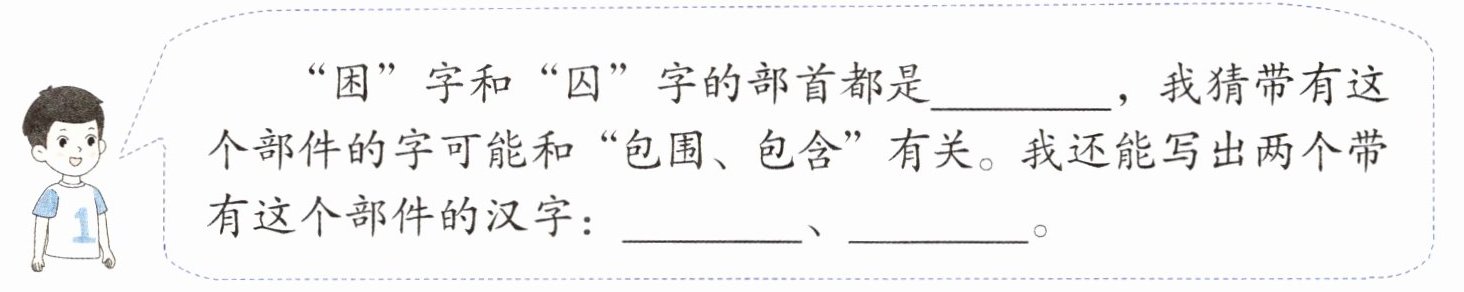 “困”字和“囚”字的部首都是________，我猜带有这
个部件的字可能和“包围、包含”有关。我还能写出两个带
有这个部件的汉字：________、________。
1